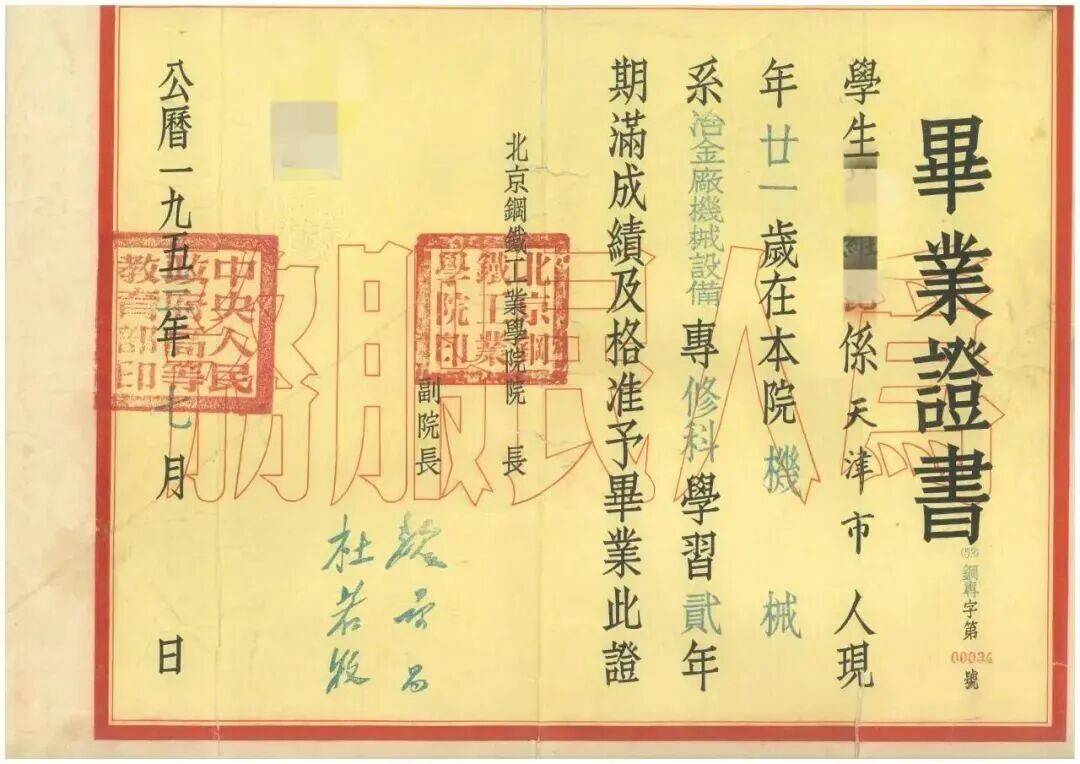 畢業證書
(53)鋼專字第00034號
學生
係天津市人現
年廿一歲在本院機械
系冶金廠機械設備專修科學習貳年
期滿成績及格准予畢業此證
北京鋼鐵工業學院院長
副院長
魏景昌
杜若牧
公曆一九五三年七月 日
北京鋼鐵工業學院印
中央人民政府高等教育部印
為人民服務